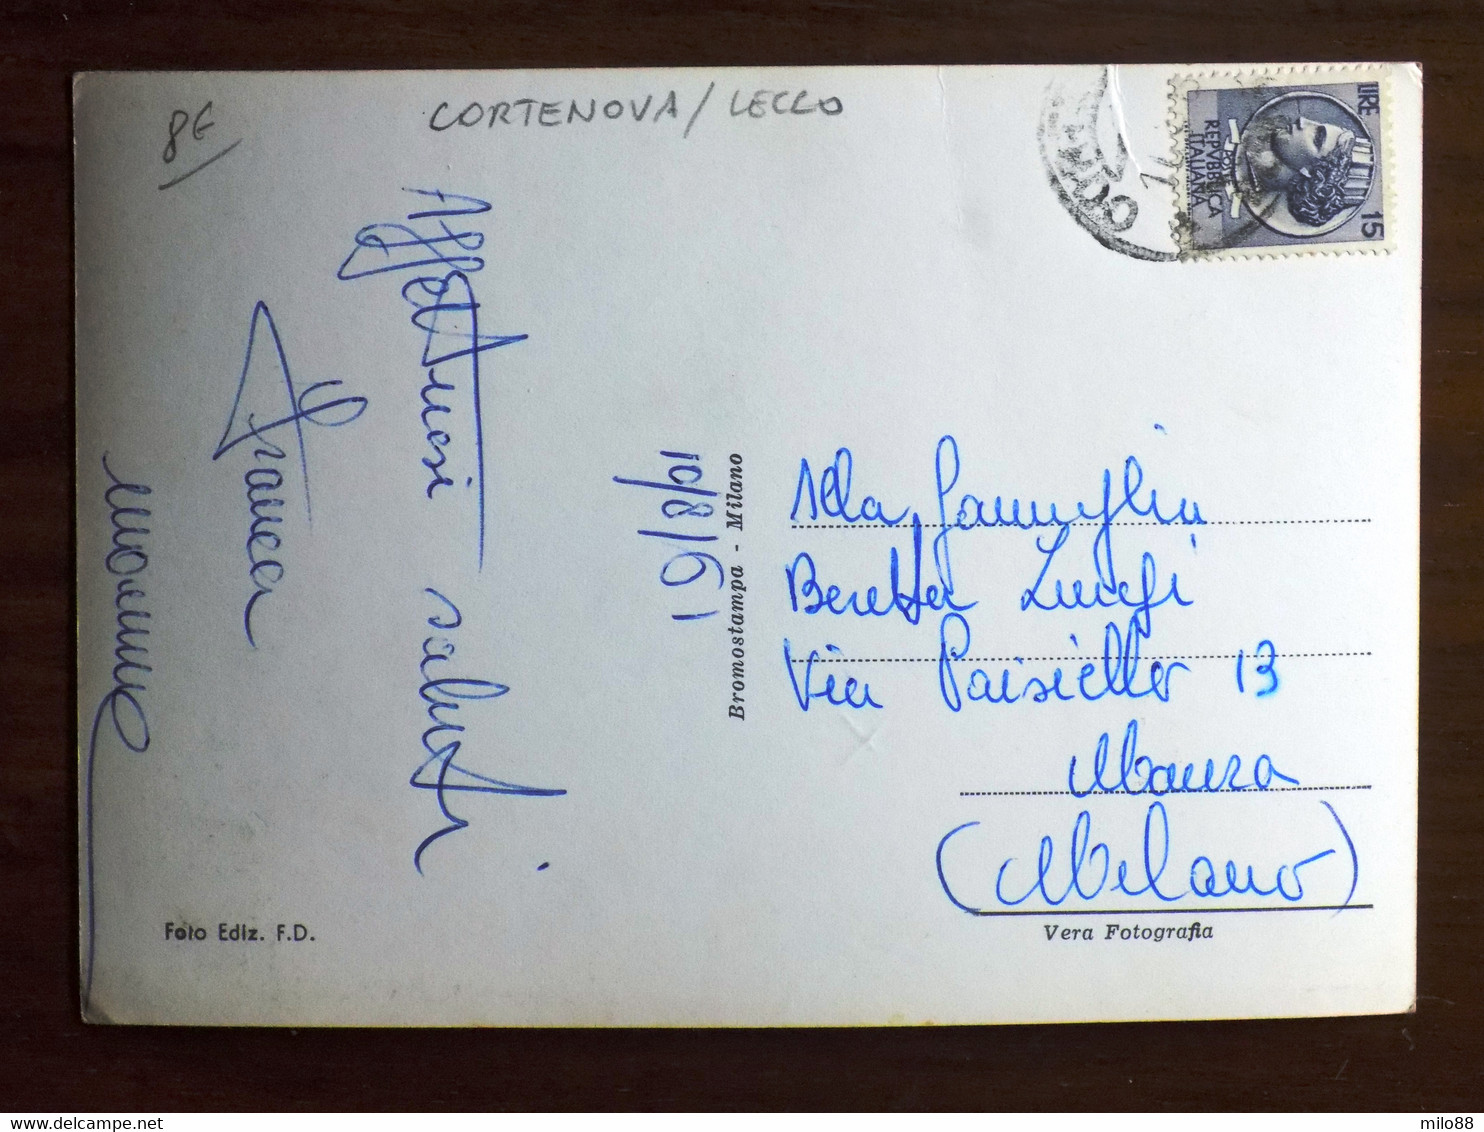 8€
CORTENOVA / LECCO
LIRE 15
REPVBBLICA
ITALIANA
Affettuosi saluti
Franca
10/8/61
Bromostampa - Milano
Alla Famiglia
Beretta Luigi
Via Paisiello 13
Monza
(Milano)
Foto Ediz. F.D.
Vera Fotografia
milo88